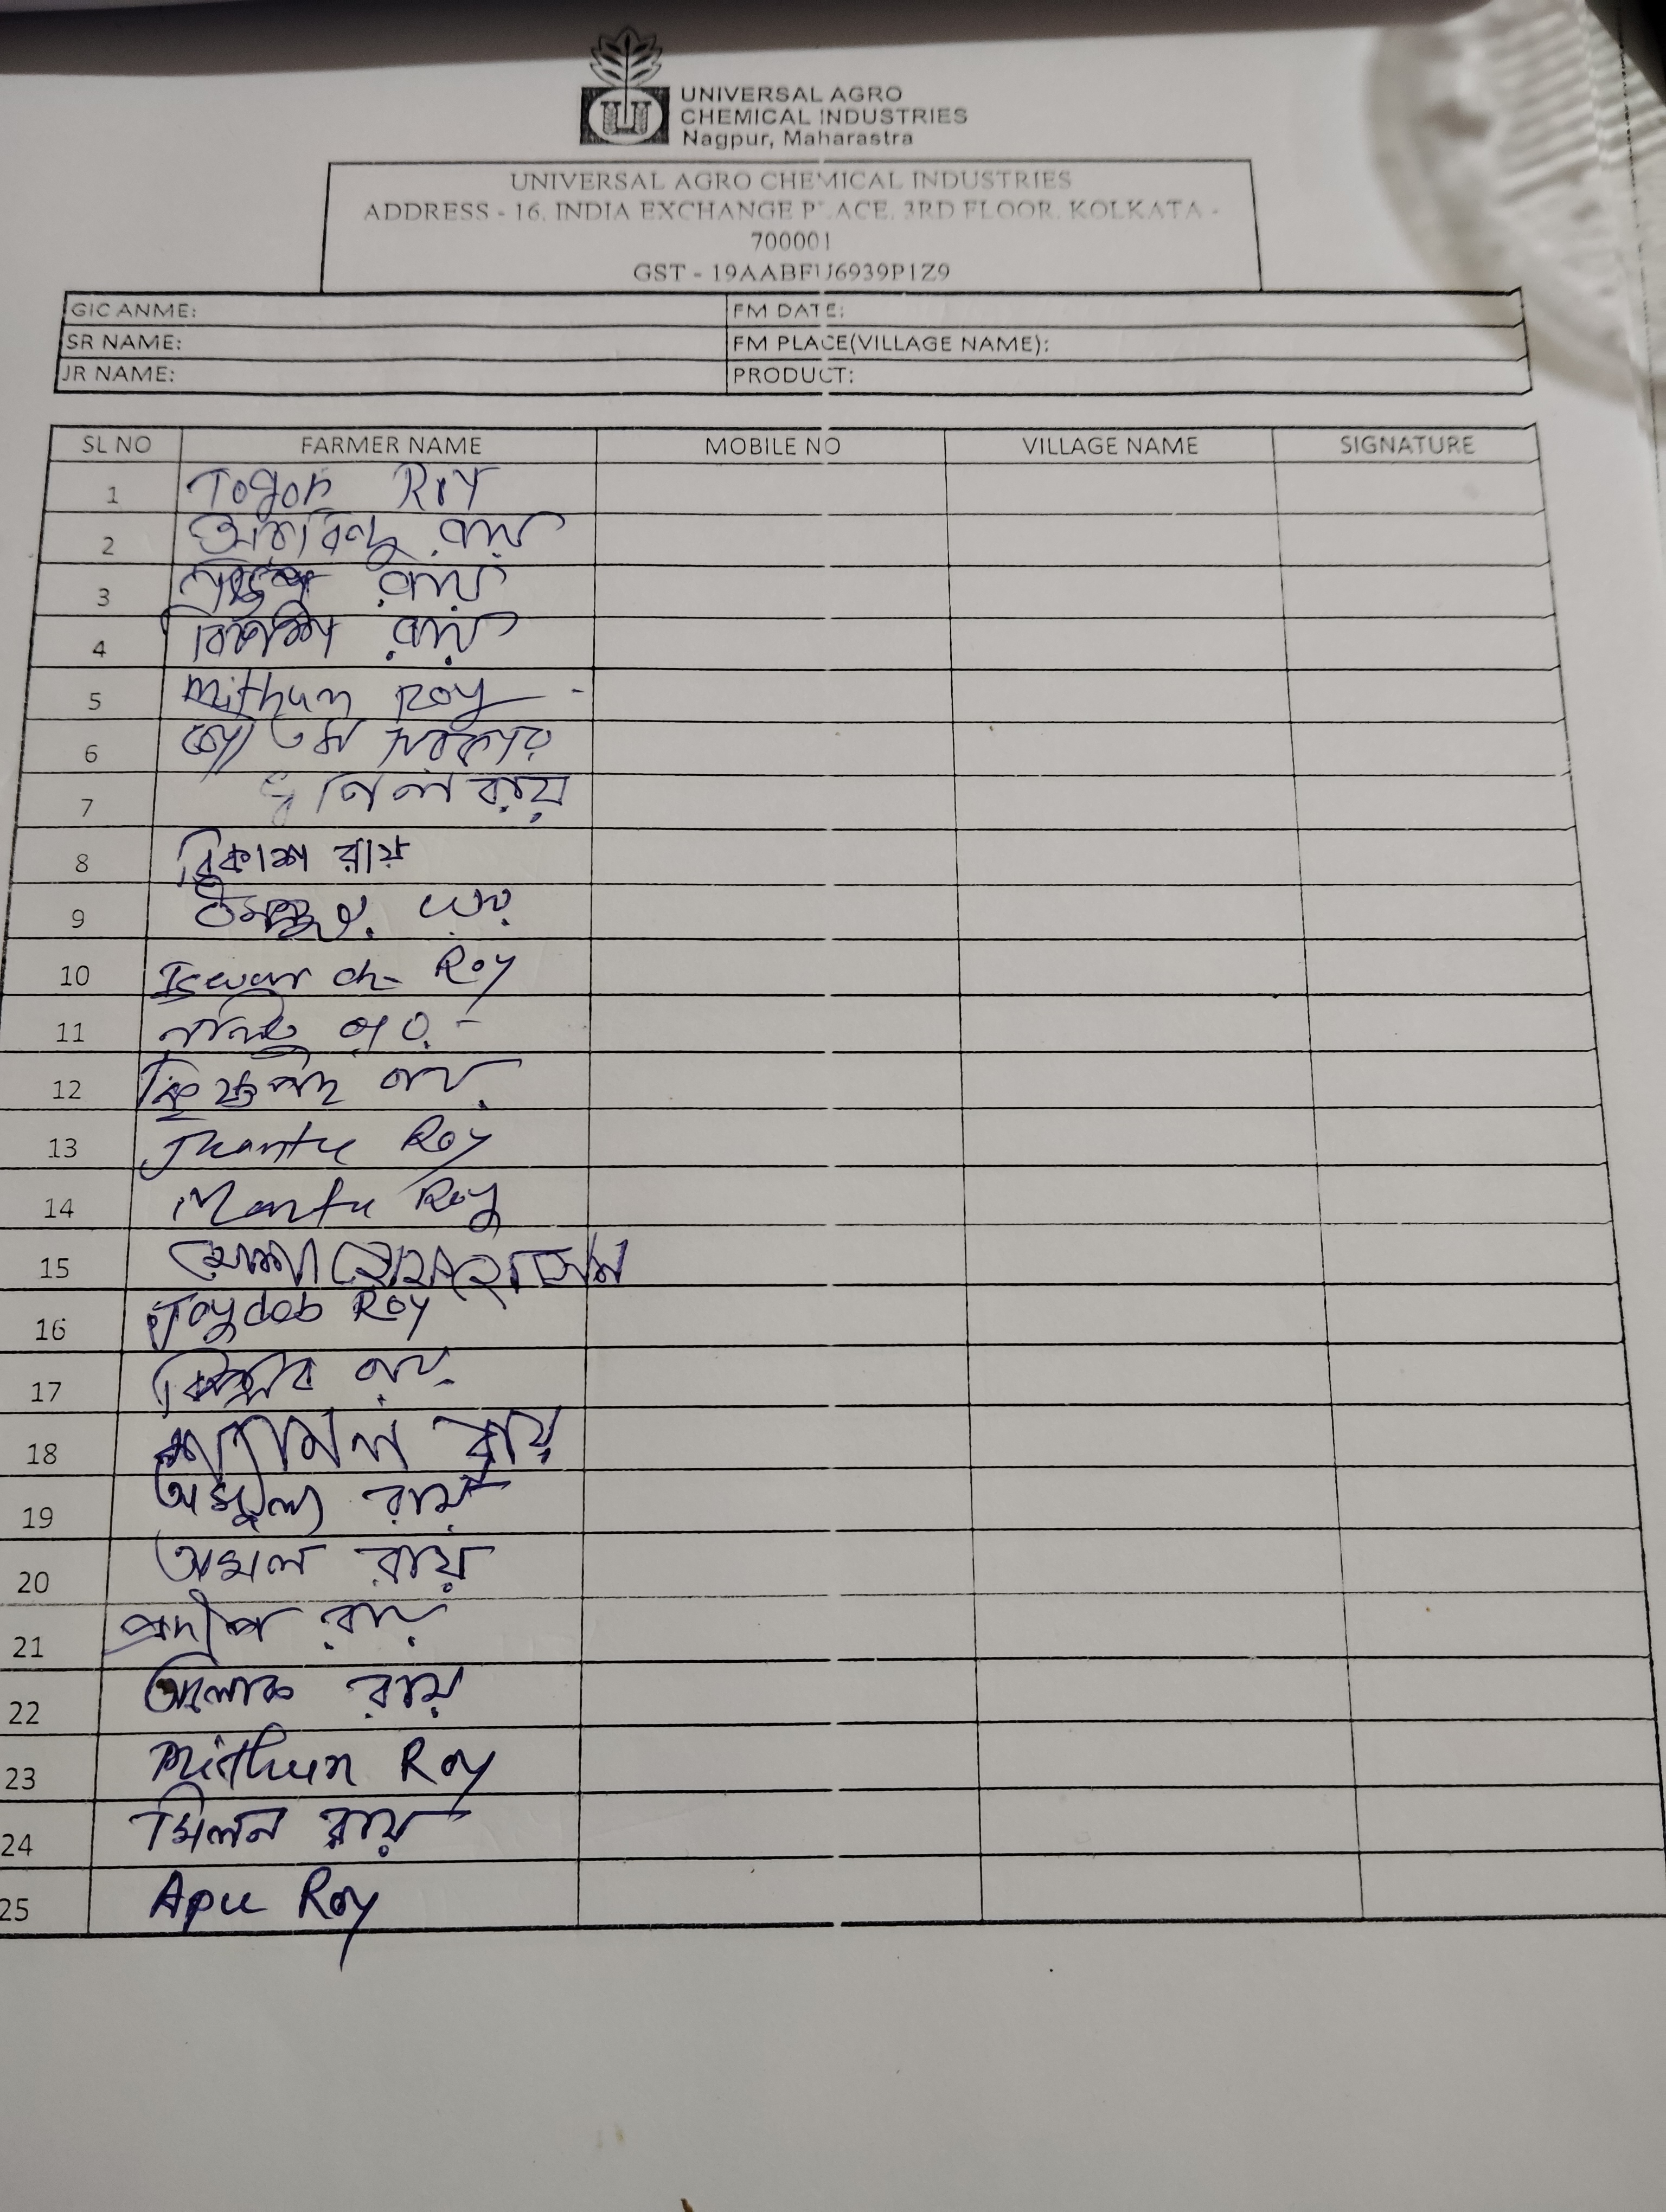 UNIVERSAL AGRO
CHEMICAL INDUSTRIES
Nagpur, Maharastra
UNIVERSAL AGRO CHEMICAL INDUSTRIES
ADDRESS - 16, INDIA EXCHANGE PLACE, 3RD FLOOR, KOLKATA -
700001
GST - 19AABFU6939P1Z9
GIC ANME: FM DATE:
SR NAME: FM PLACE(VILLAGE NAME):
JR NAME: PRODUCT:
SL NO FARMER NAME MOBILE NO VILLAGE NAME SIGNATURE
1 Togor Roy
2 রায়
3 রায়
4 রায়
5 Mithun Roy
6 সরকার
7 রায়
8 বিকাশ রায়
9
10 Iswar ch. Roy
11
12 রায়
13 Jhantu Roy
14 Mantu Roy
15
16 Joydeb Roy
17 রায়
18 শ্যামল রায়
19 অমূল্য রায়
20 অমল রায়
21 প্রদীপ রায়
22 অলোক রায়
23 Mithun Roy
24 মিলন রায়
25 Apu Roy